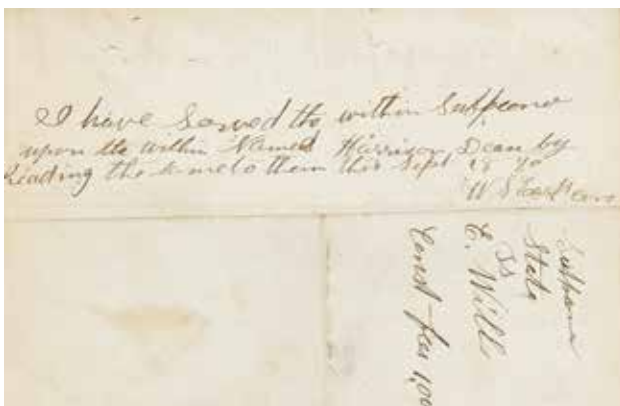 I have Served the within Subpeona
upon the within Named Harrison Dean by
Reading the same to them this Sept 18 70
Subpeona
State
vs
C. Will
Const fees 1,00